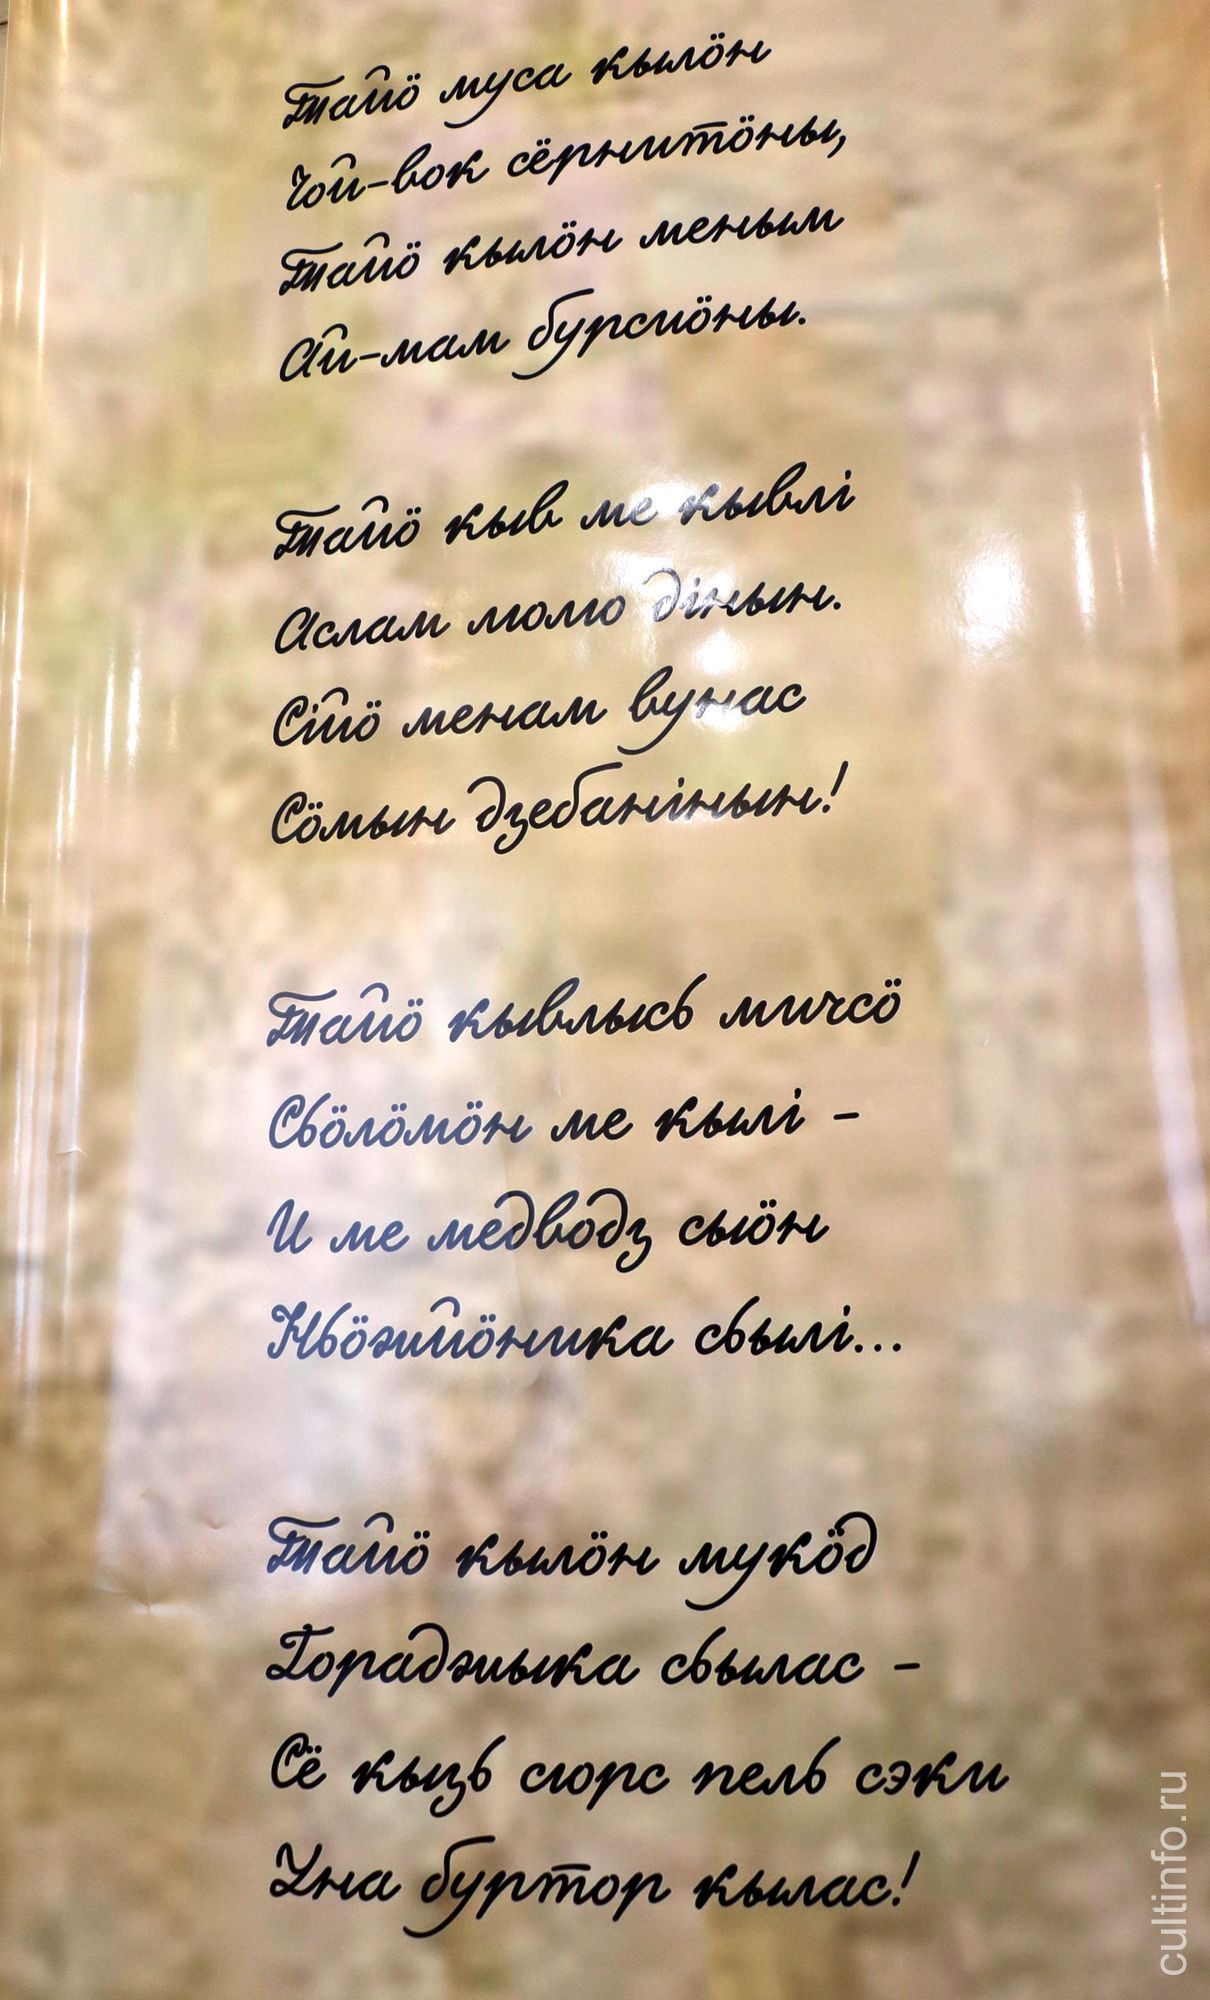 Тайö муса кылöн
Чой-вок сёрнитöны,
Тайö кылöн меным
Ай-мам бурсиöны.
Тайö кыв ме кывлі
Аслам мамö дінын.
Сійö менам вунас
Сöмын дзебанінын!
Тайö кывлысь мичсö
Сьöлöмöн ме кылі –
И ме медводз сыöн
Ньöжйöникa сьылі...
Тайö кылöн мукöд
Гораджыка сьылас –
Сё кызь сюрс пель сэки
Уна буртор кылас!
cultinfo.ru